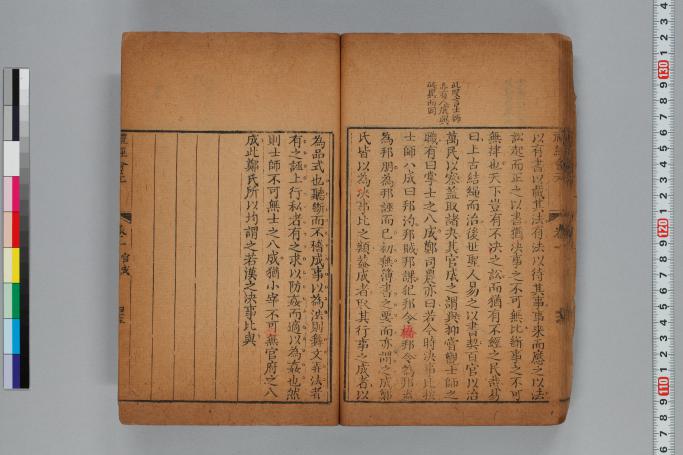 以有書以載其法有法以待其事事來而應之以法
訟起而正之以書猶決事之不可無比斷事之不可
無律也天下豈有不決之訟而猶有不經之民哉易
曰上古結繩而治後世聖人易之以書契百官以治
萬民以察蓋取諸夬其官成之謂與抑嘗觀士師之
職有曰掌士之八成鄭司農亦曰若今時決事比按
士師八成曰邦汋邦賊邦諜犯邦令撟邦令為邦盜
為邦朋為邦誣而已初無簿書之要而亦謂之成鄭
氏皆以為決事比之類蓋成者取其行事之成者以
此段言士師
亦有八成與
為品式也聽斷而不稽成事以為法則舞文弄法者
有之誣上行私者有之求以防姦而適以為姦也然
則士師不可無士之八成猶小宰不可無官府之八
成此鄭氏所以均謂之若漢之決事比與
官成